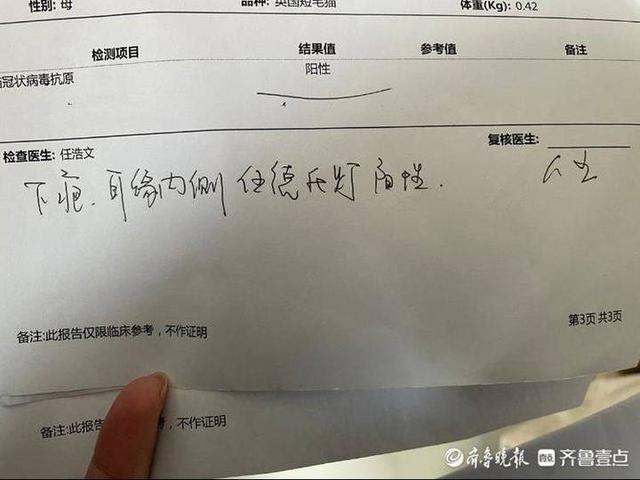 性别: 母 品种: 英国短毛猫 体重(Kg): 0.42
检测项目 结果值 参考值 备注
冠状病毒抗原 阳性
检查医生: 任浩文 复核医生:
耳缘内侧 伍德氏灯 阳性.
备注:此报告仅限临床参考，不作证明
第3页 共3页
备注:此报告 参考，不作证明
齐鲁晚报 齐鲁壹点